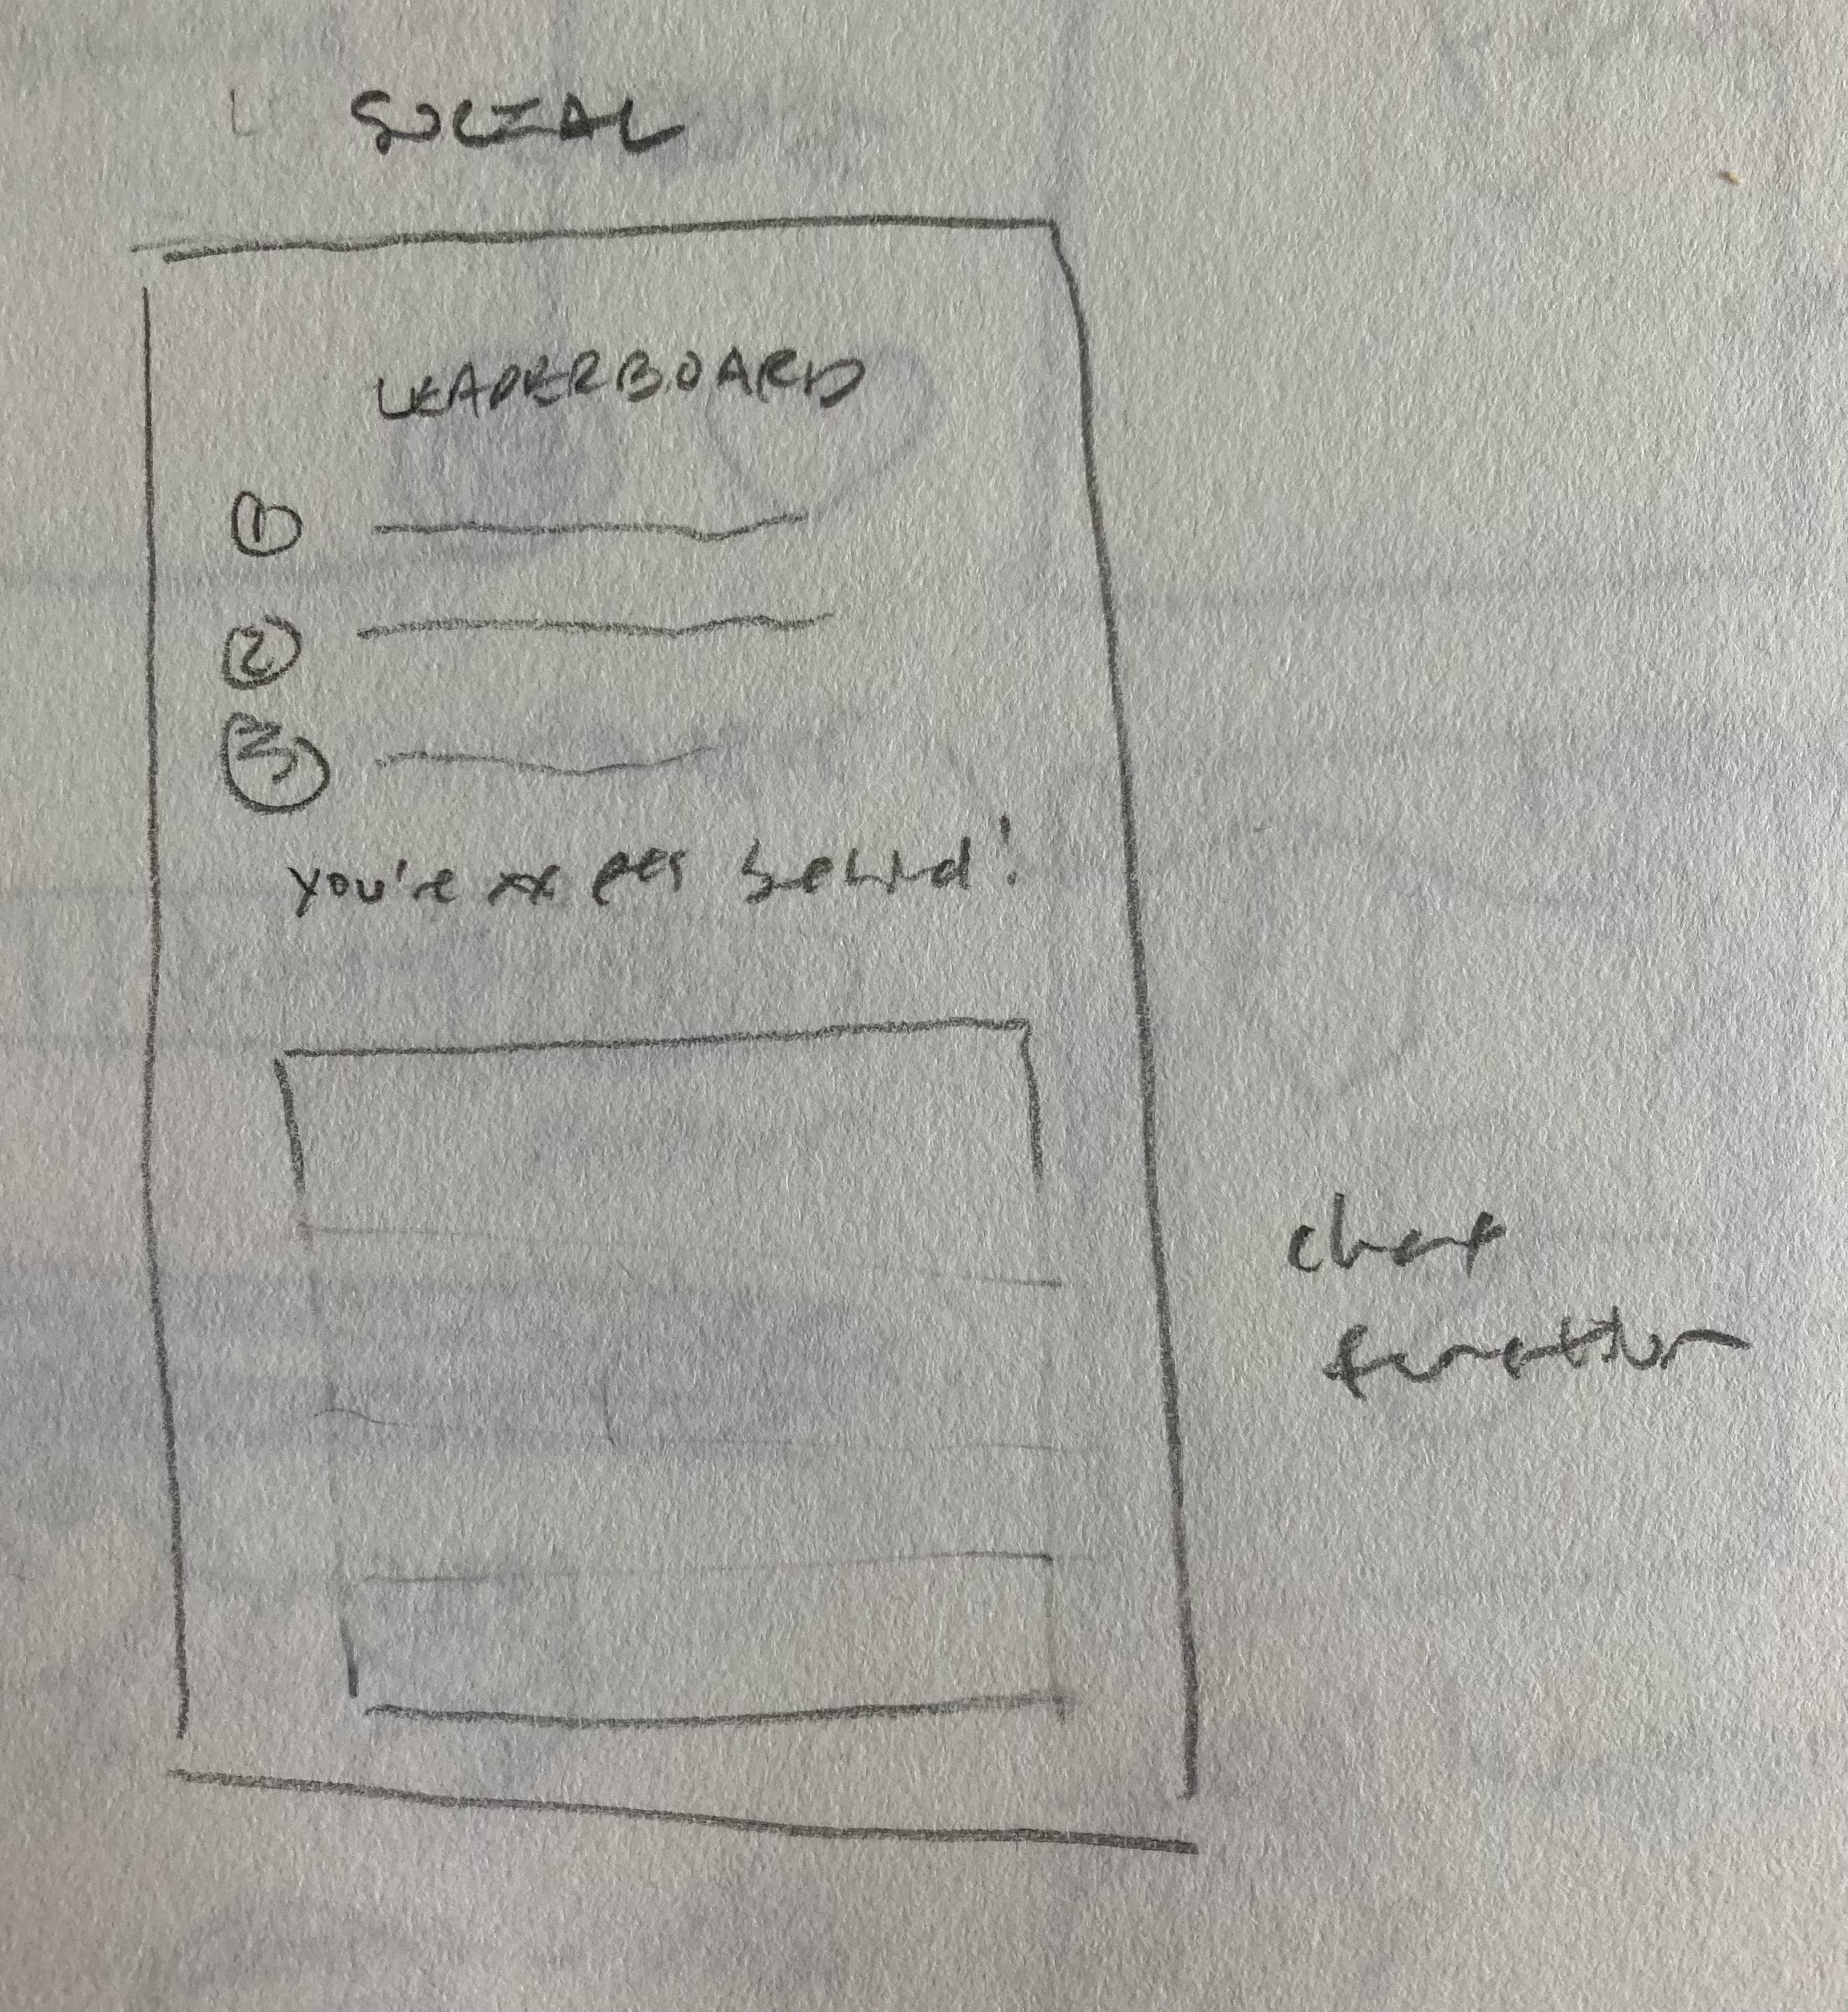 SOCIAL
LEADERBOARD
1
2
3
you're xx pts behind!
chat
function